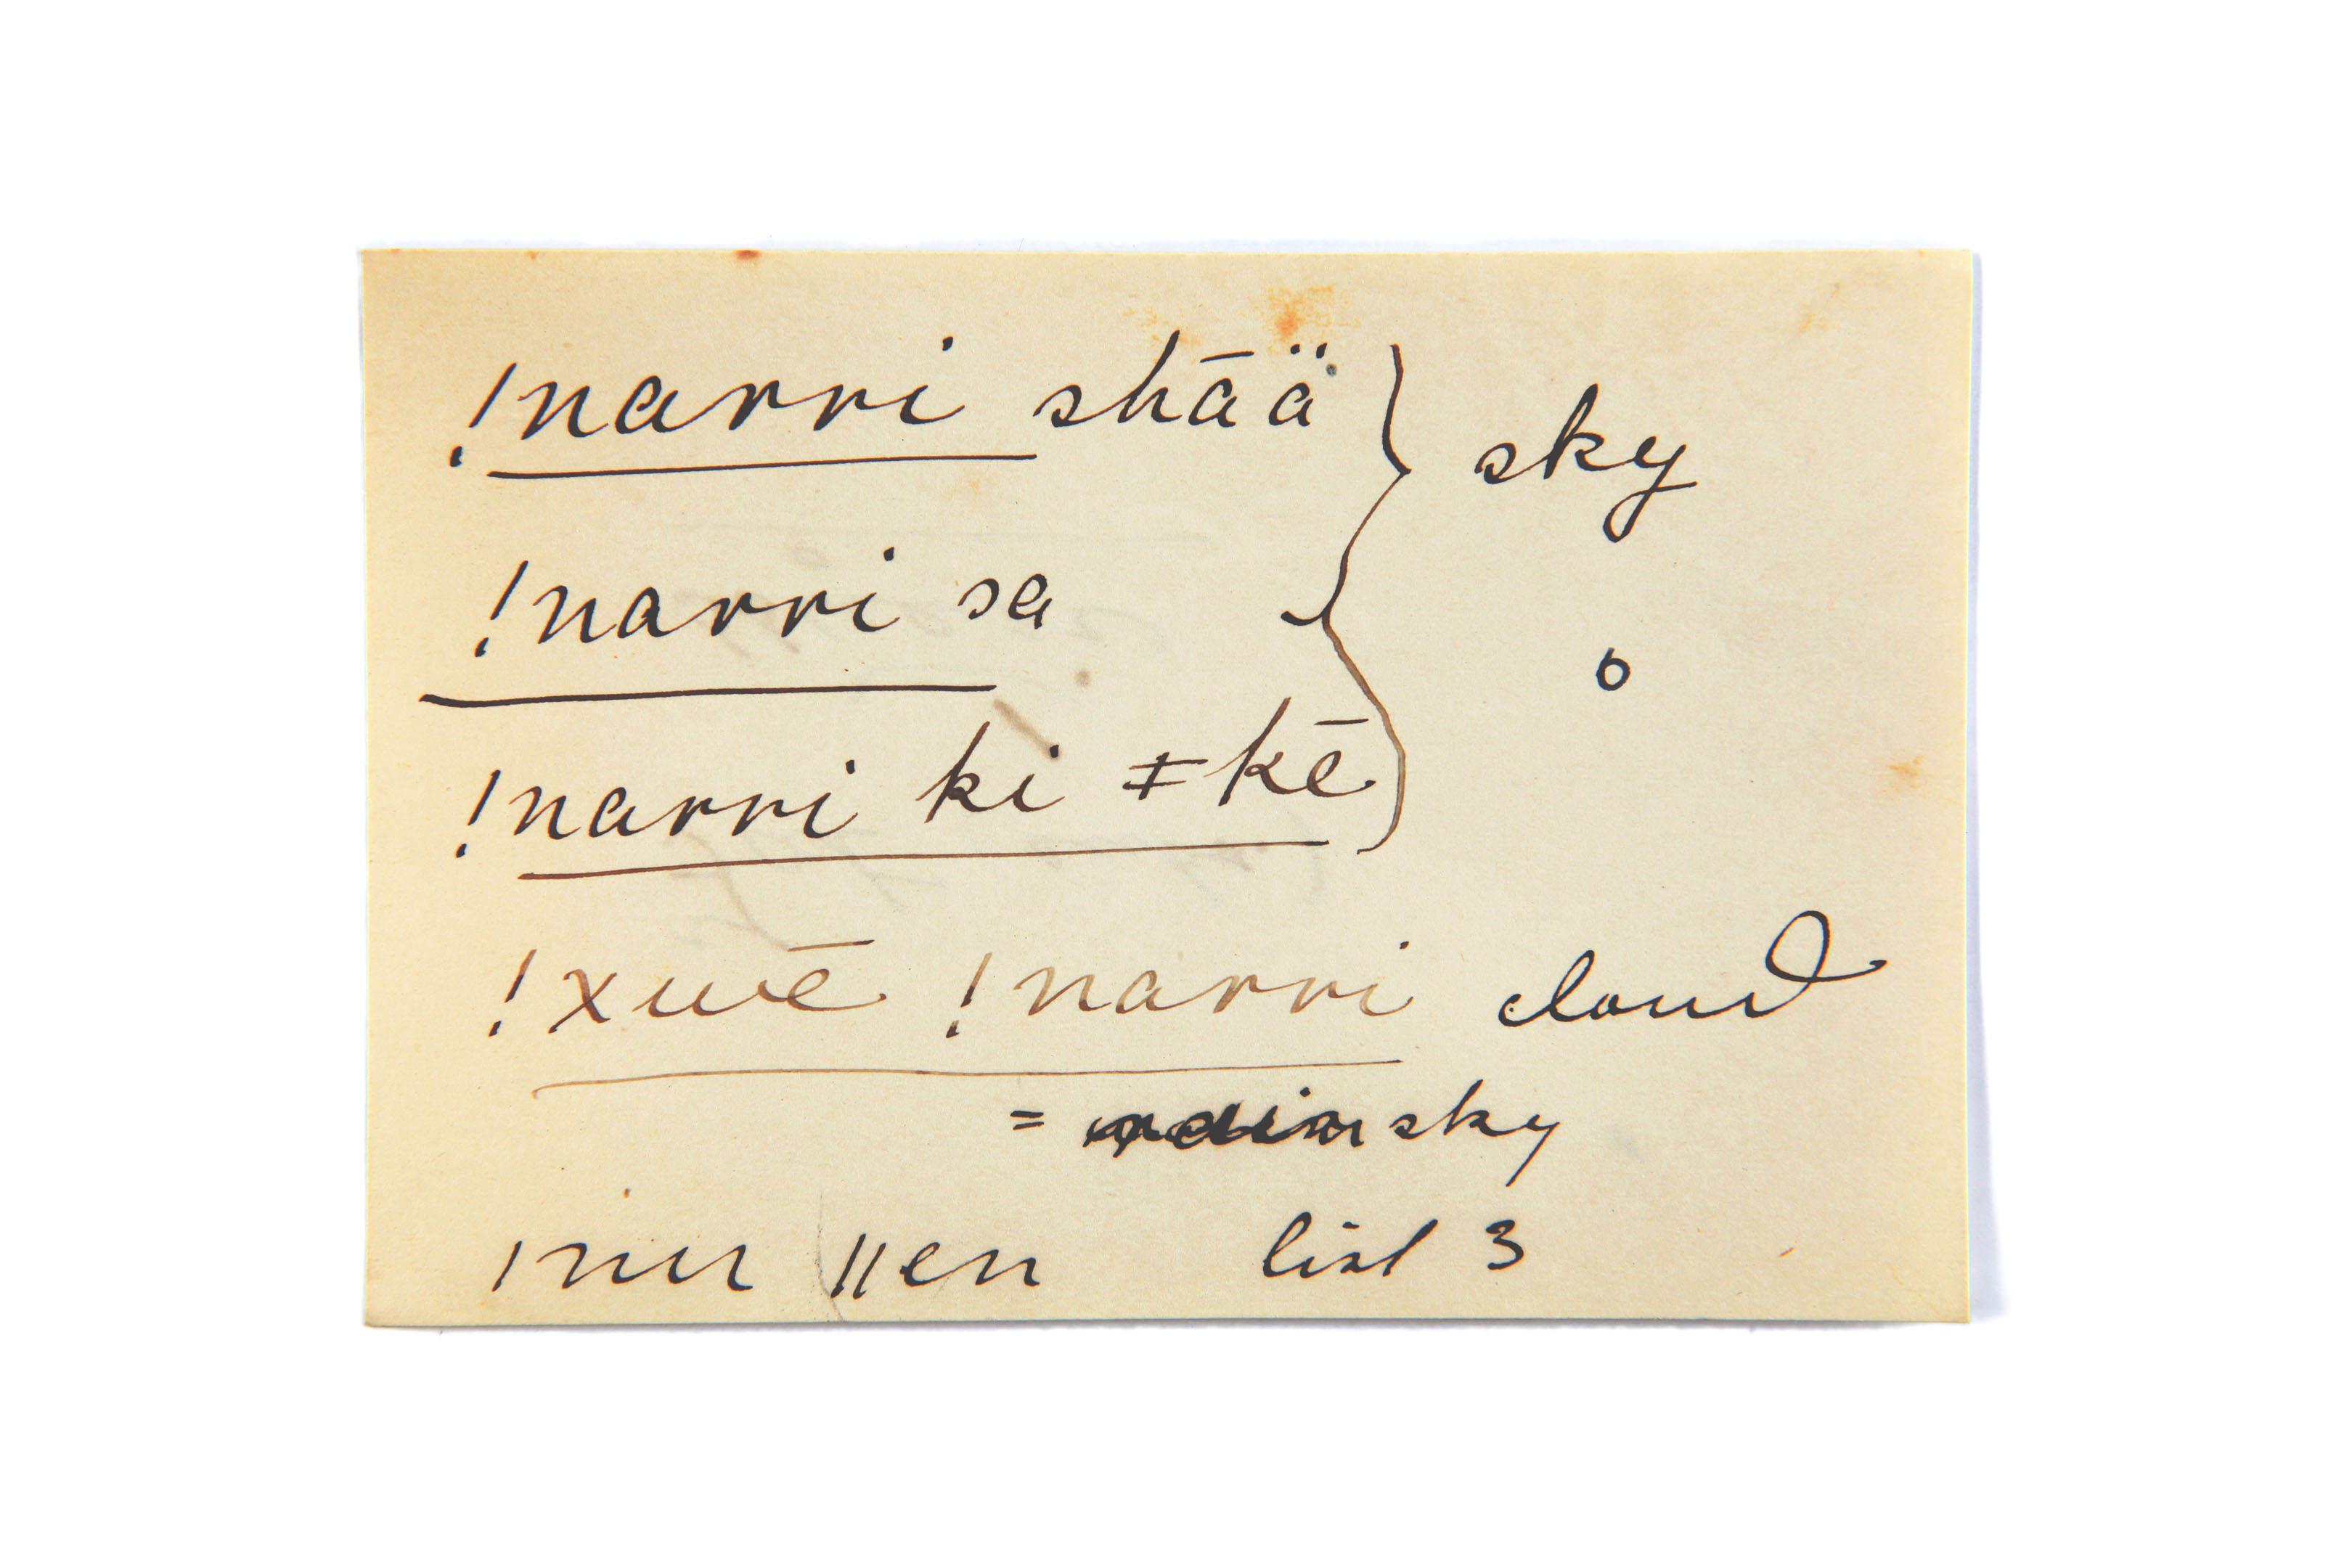 !narri shāä } sky
!narri sa
o
!narri ki ǂkē
!xuē !narri cloud
= sky
ǀnu ǁen list 3